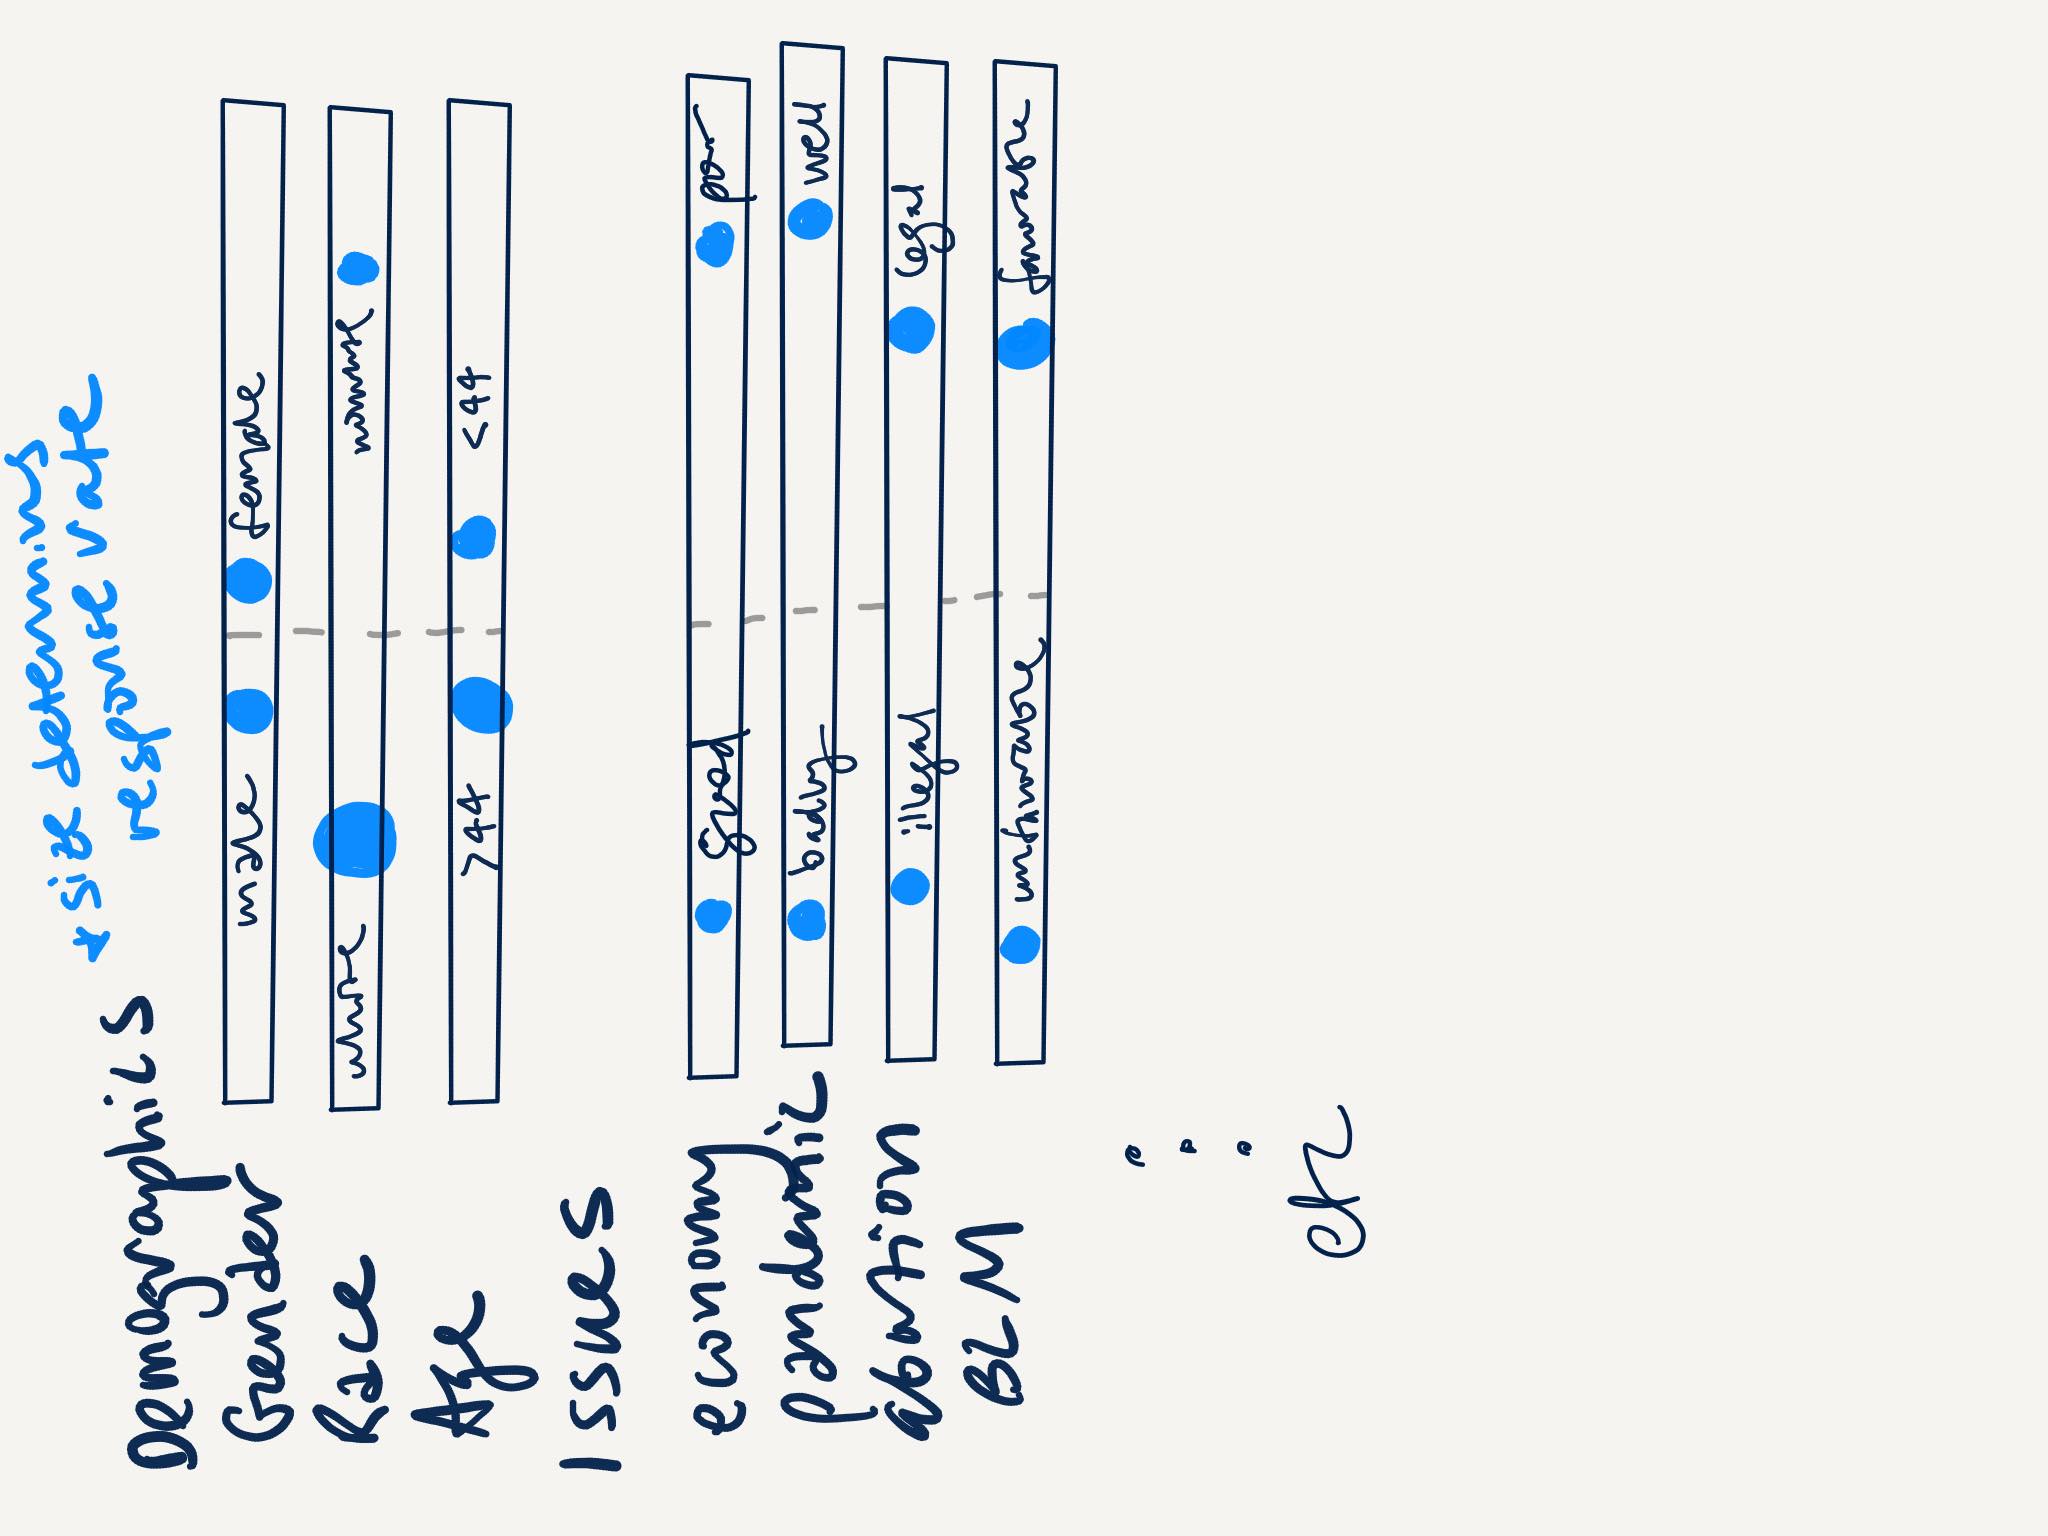 * size determins
response rate
Demographics
Gender male female
Race white nonwhite
Age >44 <44
Issues
economy good poor
pandemic badly well
abortion illegal legal
BLM unfavorable favorable
etc